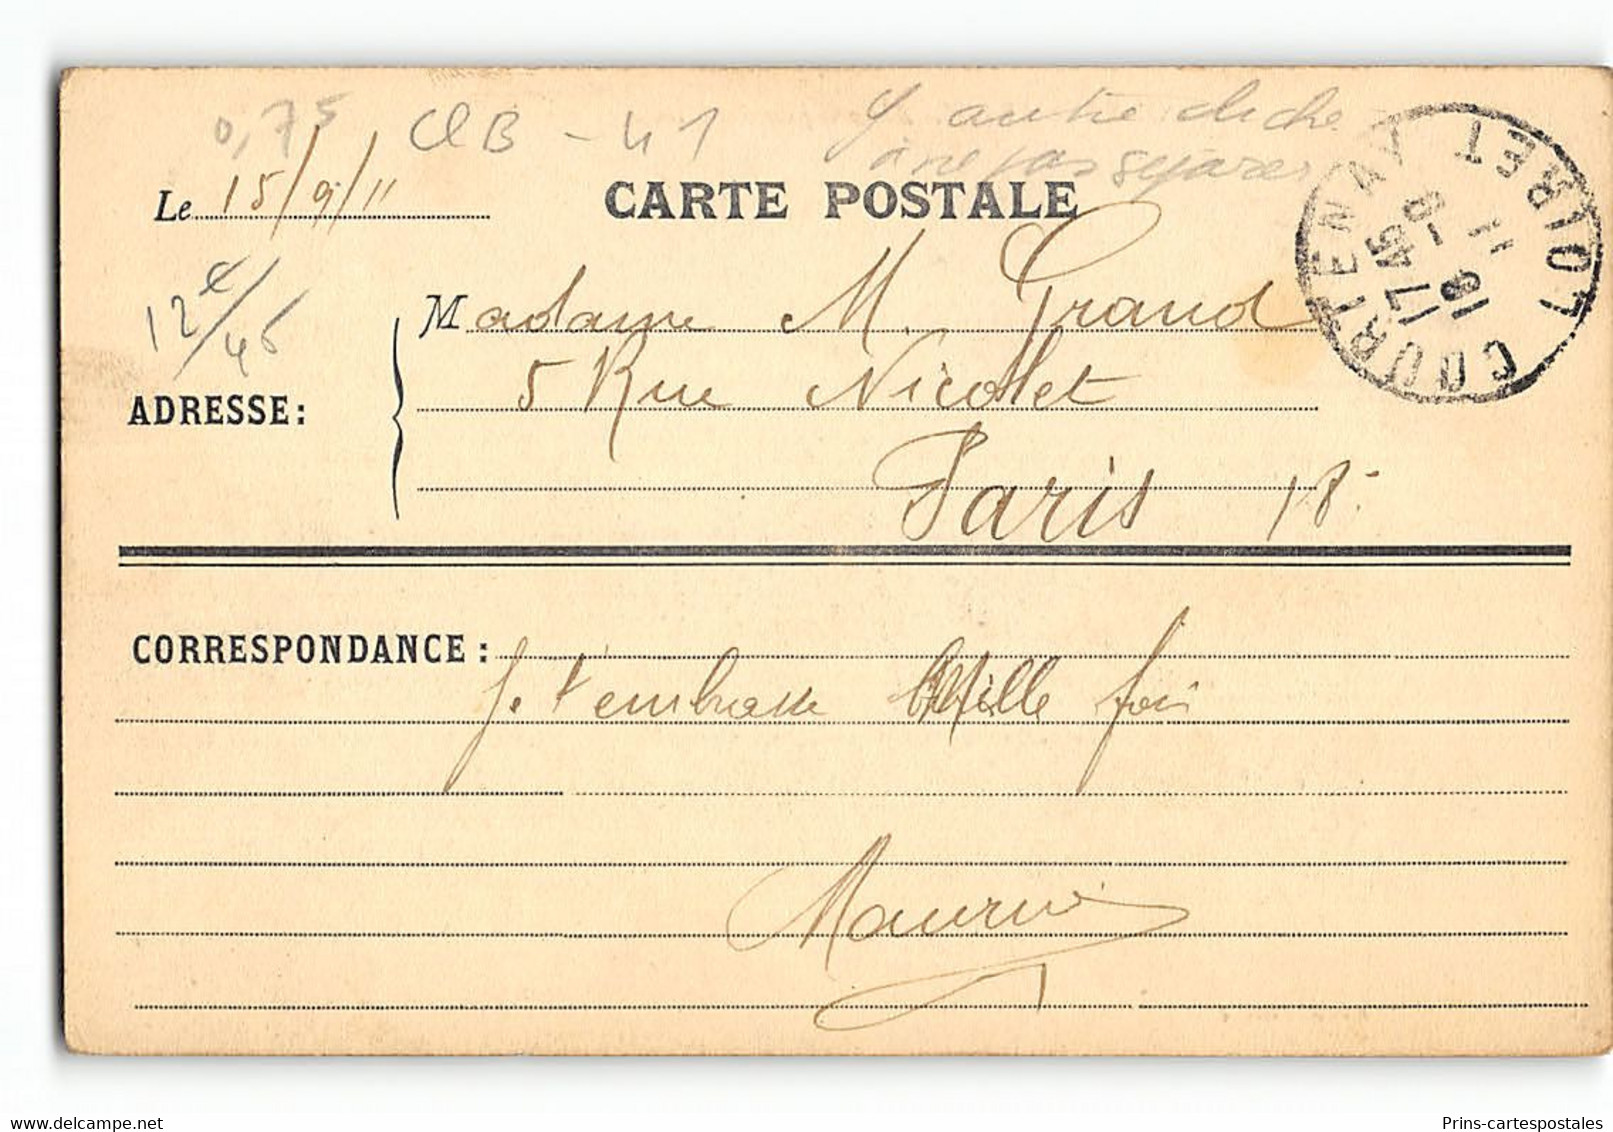 0,75 ClB - 41 autre cliché
à ne pas séparer
Le 15/9/11 CARTE POSTALE
COURTENAY LOIRET
17 45
16 - 9
11
12
46
Madame M. Grand
ADRESSE: 5 Rue Nicolet
Paris 18
CORRESPONDANCE :
Je t'embrasse Mille fois
Maurice
www.delcampe.net
Prins-cartespostales